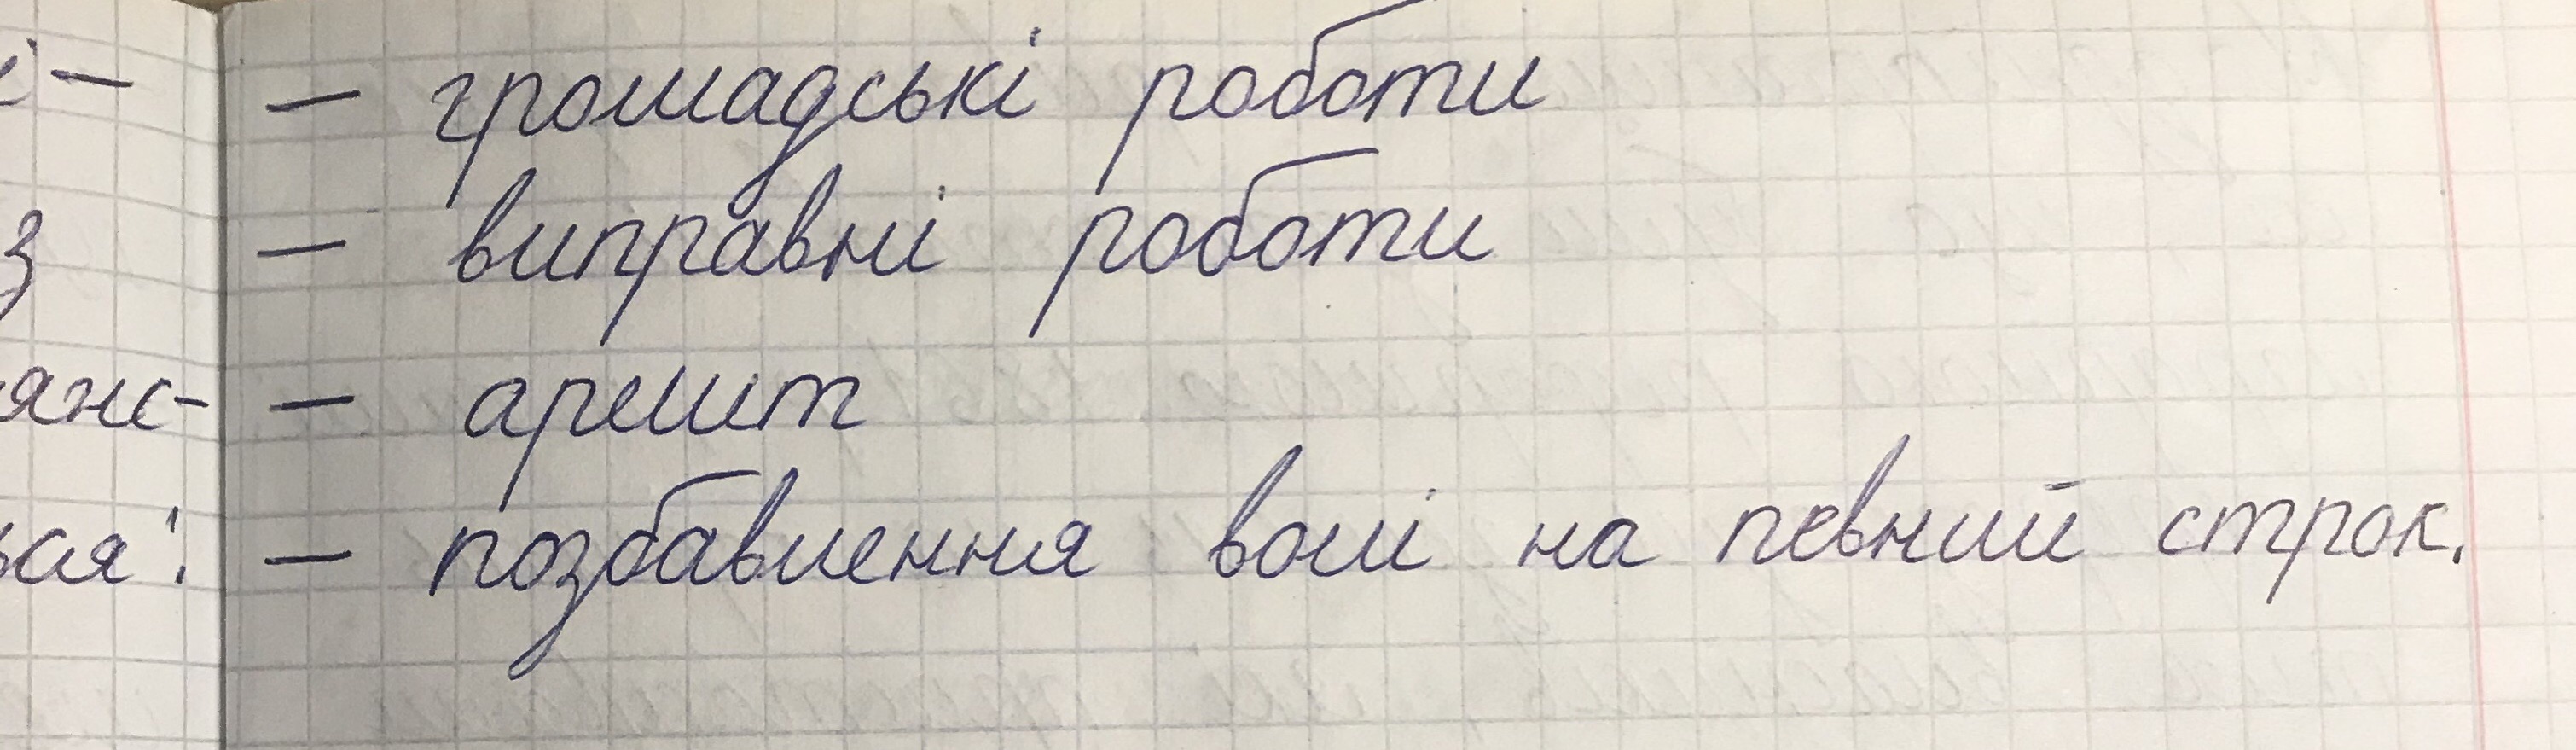 — громадські роботи
— виправні роботи
— арешт
— позбавлення волі на певний строк.